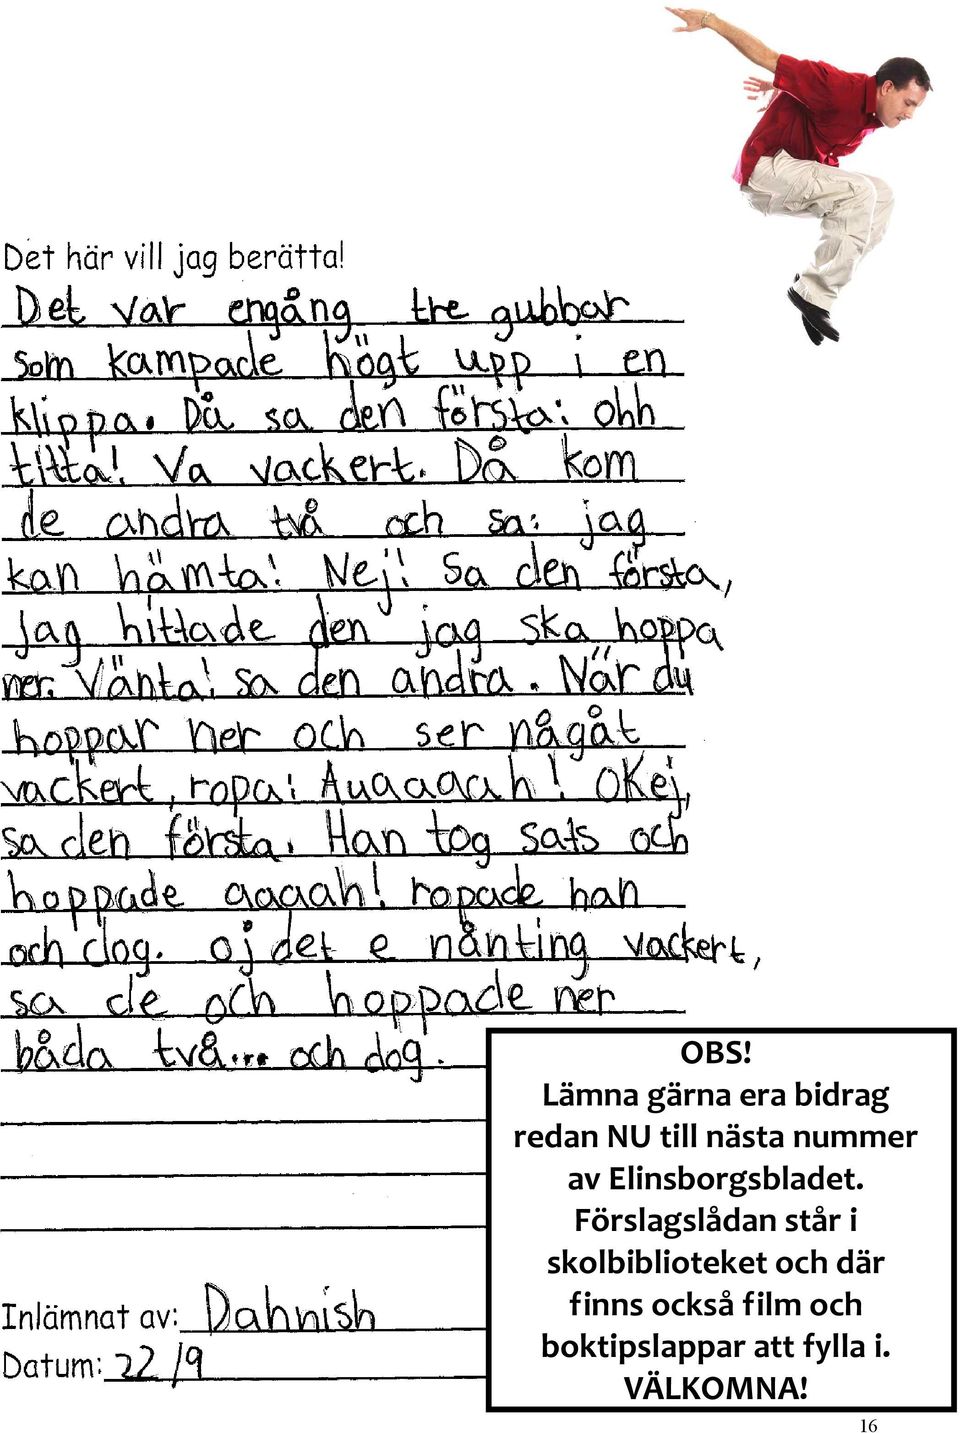 Det här vill jag berätta!
Det var engång tre gubbar
som kampade högt upp i en
klippa. Då sa den första: Ohh
titta! Va vackert. Då kom
de andra två och sa: jag
kan hämta! Nej! Sa den första,
Jag hittade den jag ska hoppa
ner. Vänta! sa den andra. När du
hoppar ner och ser någåt
vackert, ropa: Auaaaah! OKej,
sa den första. Han tog sats och
hoppade aaaah! ropade han
och dog. oj det e nånting vackert,
sa de och hoppade ner
båda två... och dog.
Inlämnat av: Dahnish
Datum: 22/9
OBS!
Lämna gärna era bidrag
redan NU till nästa nummer
av Elinsborgsbladet.
Förslagslådan står i
skolbiblioteket och där
finns också film och
boktipslappar att fylla i.
VÄLKOMNA!
16